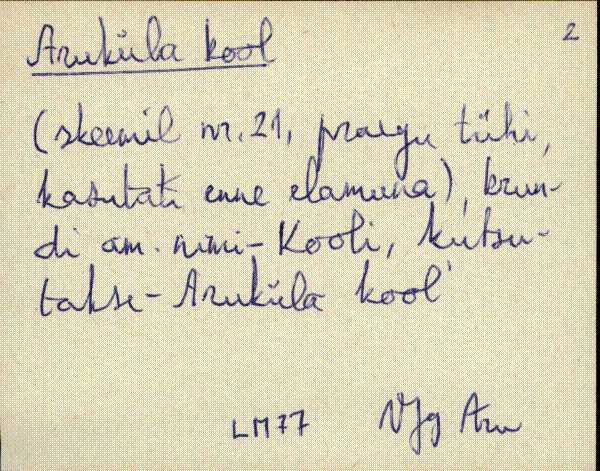 Aruküla kool 2
(skeemil nr. 21, praegu tühi,
kasutati enne elamuna), krun-
di am. nimi - Kooli, kutsu-
takse - Aruküla kool'
LM77 VJg Aru